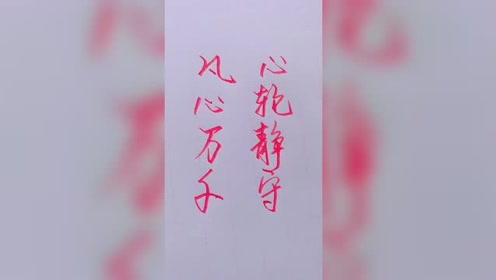 心轮静守
凡心万千